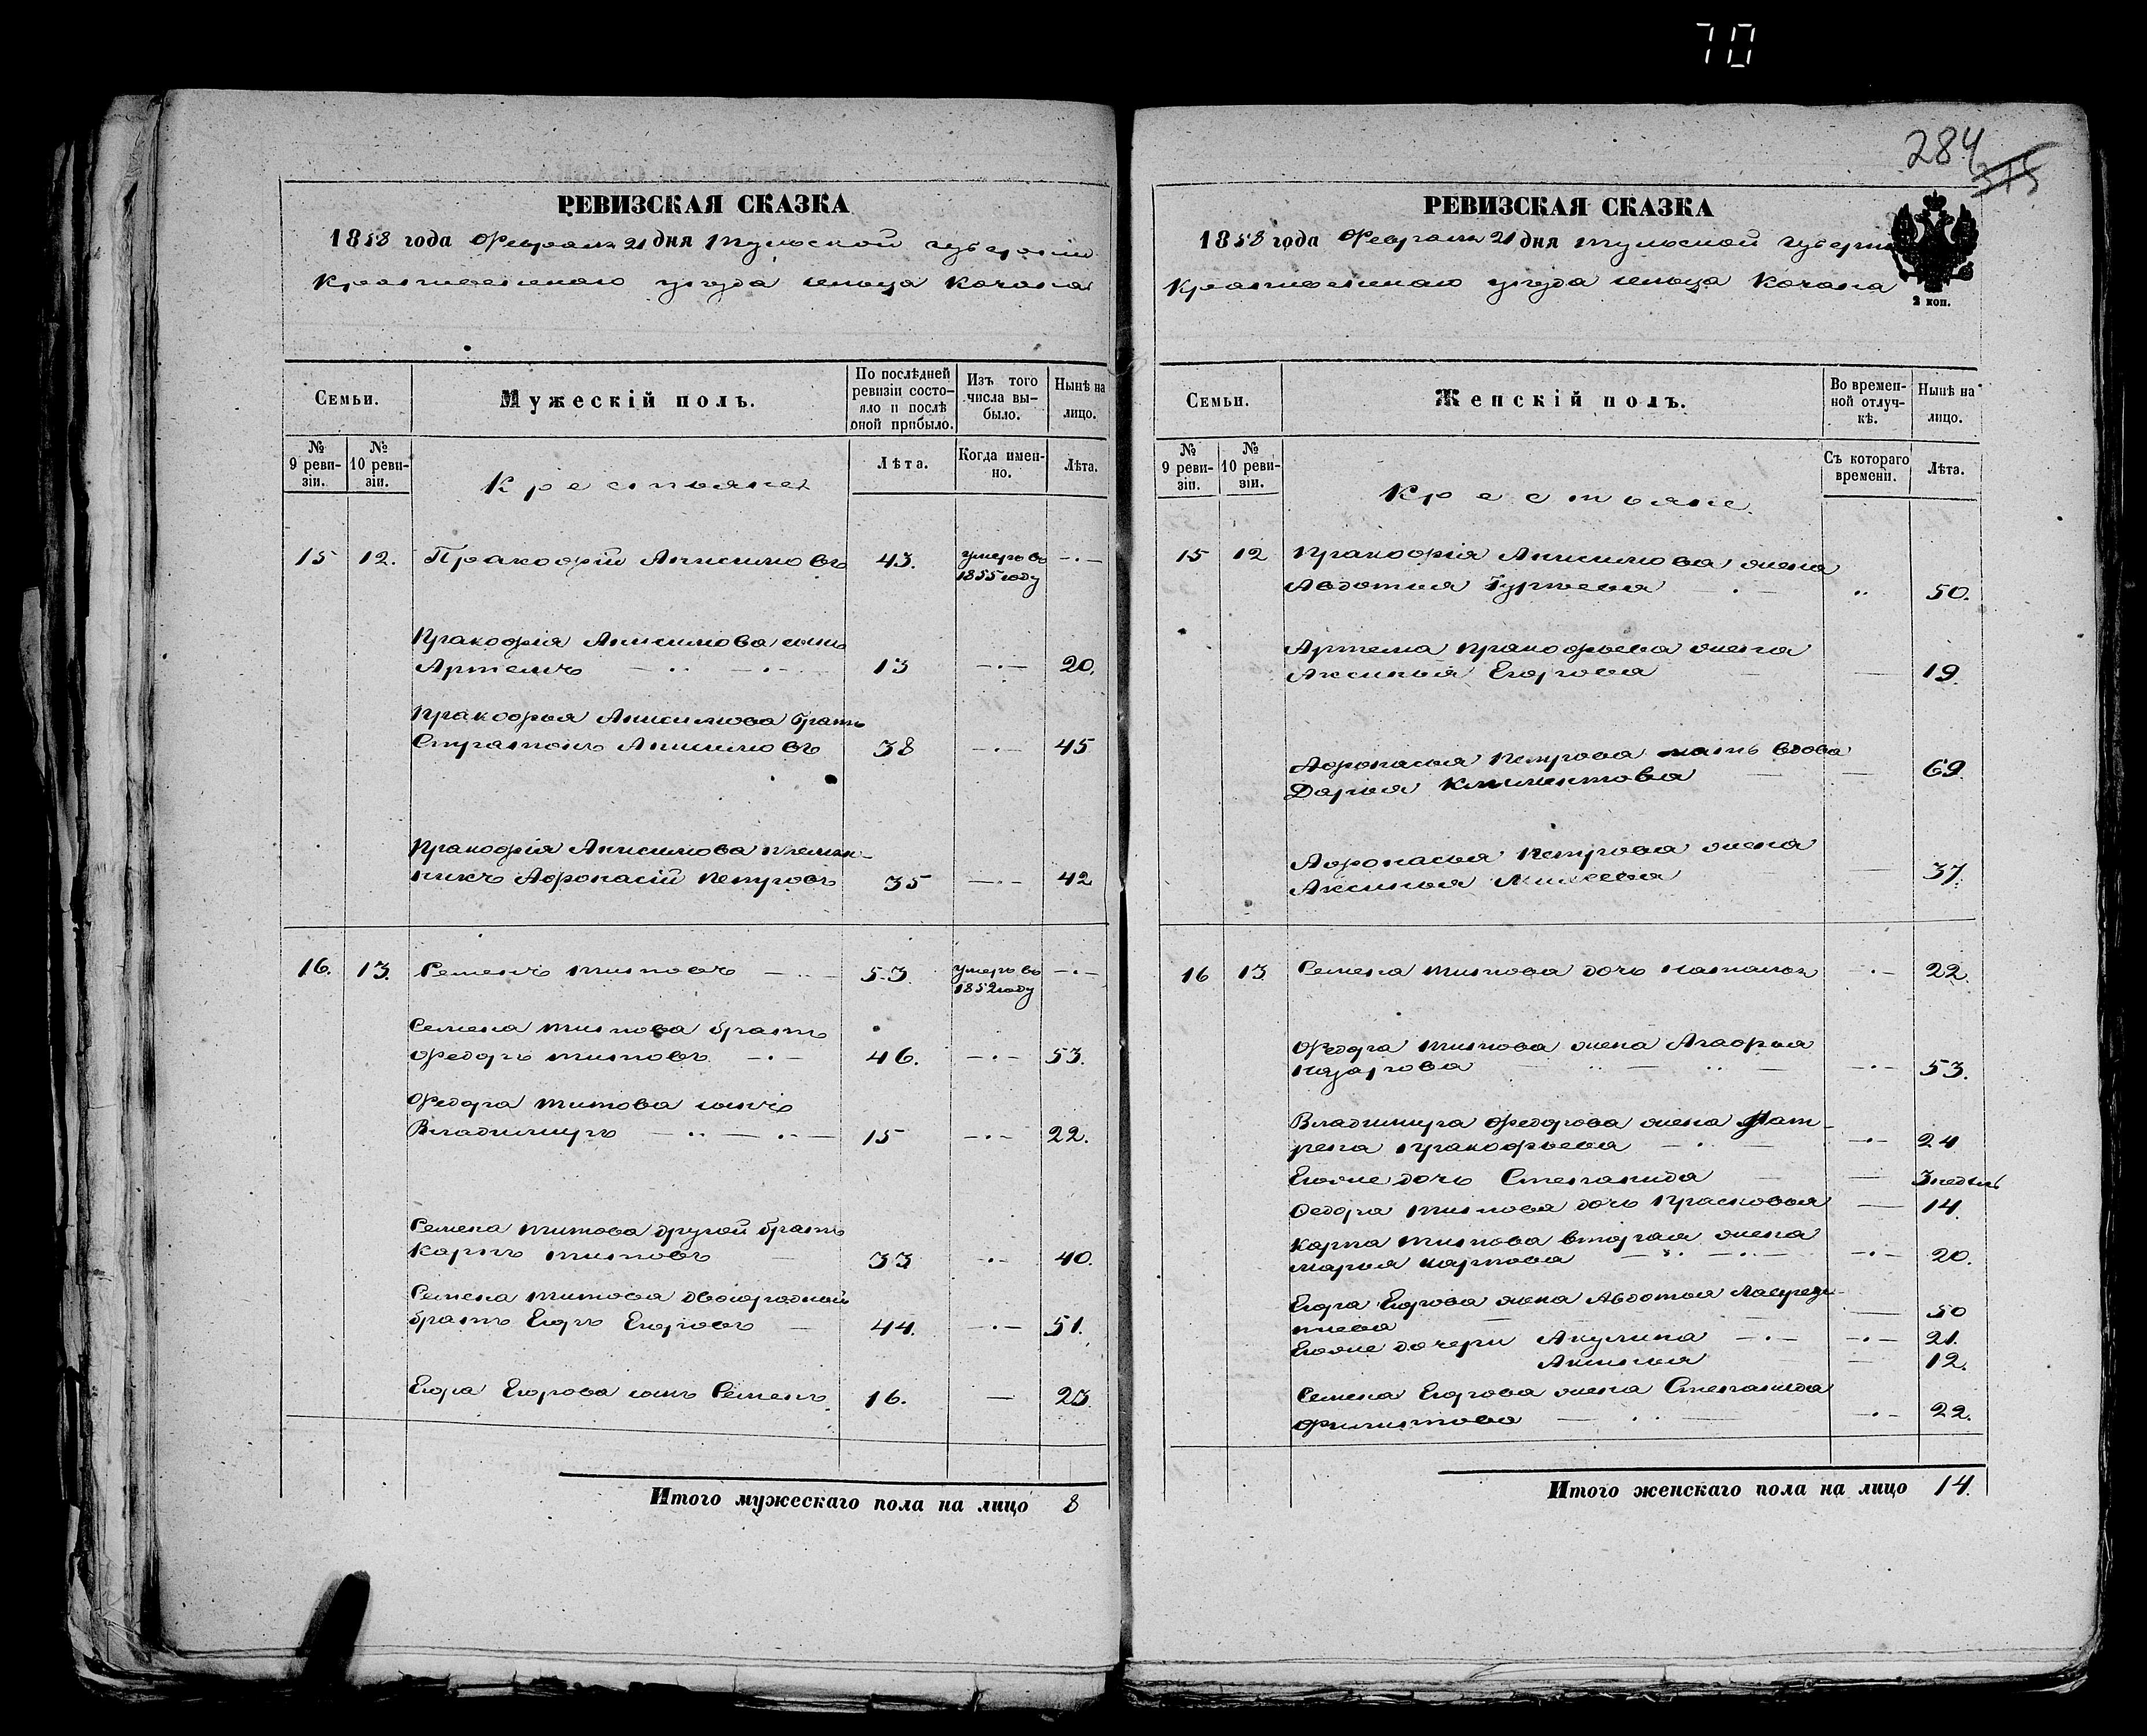 70
284
315
РЕВИЗСКАЯ СКАЗКА
1858 года Февраля 21 дня Тульской губернiи
Крапивенскаго уезда сельца Кочана
Семьи.
Мужескій полъ.
По послѣдней
ревизіи состо-
яло и послѣ
оной прибыло.
Изъ того
числа вы-
было.
Нынѣ на
лицо.
№
9 реви-
зіи.
№
10 реви-
зіи.
Крестьяне
Лѣта.
Когда имен-
но.
Лѣта.
15 12. Пракофiй Анисимовъ 43. умеръ въ
1855 году
Пракофiя Анисимова сынъ
Артемъ 13 20.
Пракофья Анисимова братъ
Стратонъ Анисимовъ 38 45
Пракофiя Анисимова племян-
никъ Афонасiй Петровъ 35 42
16. 13. Семенъ Титовъ 53. умеръ въ
1852 году
Семена Титова братъ
Федоръ Титовъ 46. 53.
Федора Титова сынъ
Владимиръ 15 22.
Семена Титова другой братъ
Карпъ Титовъ 33 40.
Семена Титова двоюродный
братъ Егоръ Егоровъ 44. 51.
Егора Егорова сынъ Семенъ 16. 23.
Итого мужескаго пола на лицо 8
РЕВИЗСКАЯ СКАЗКА
1858 года Февраля 21 дня Тульской губернiи
Крапивенскаго уезда сельца Кочана
2 коп.
Семьи.
Женскій полъ.
Во времен-
ной отлуч-
кѣ.
Нынѣ на
лицо.
№
9 реви-
зіи.
№
10 реви-
зіи.
Крестьяне.
Съ котораго
времени.
Лѣта.
15 12 Пракофiя Анисимова жена
Авдотья Гурьева 50.
Артема Пракофьева жена
Аксинья Егорова 19.
Афонасья Петрова мать вдова
Дарья Климентова 69.
Афонасья Петрова жена
Аксинья 37.
16 13 Семена Титова дочь Наталья 22.
Федора Титова жена Агафья
Назарова 53.
Владимира Федорова жена Мат-
рена Пракофьева 24
Егоже дочь Степанида 3 недель
Федора Титова дочь Прасковья 14.
Карпа Титова вторая жена
Марья Карпова 20.
Егора Егорова жена Авдотья Лаврен-
тьева 50
Егоже дочери Акулина 21.
Аксинья 12.
Семена Егорова жена Степанида
Филиптова 22.
Итого женскаго пола на лицо 14.